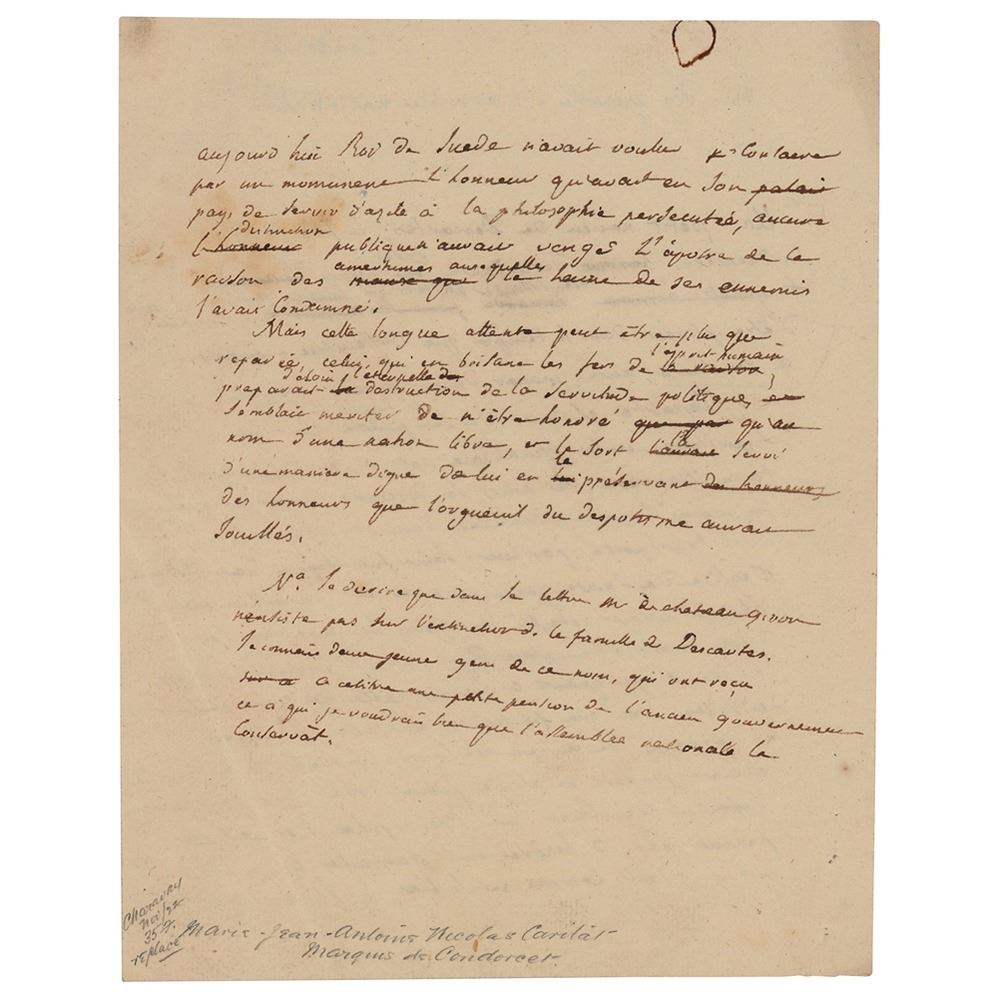 aujourd'hui Roy de Suede n'avait voulu consacrer
par un monument l'honneur qu'avait eu son palais
pays de servir d'azile à la philosophie persecutée, aucune
distinction
l'honneur publique n'aurait vengé l'apotre de la
amertumes auxquelles
raison des maux que la haine de ses ennemis
l'avait condamné.
Mais cette longue attente peut être plus que
l'esprit humain
reparée, celui, qui en brisant les fers de la raison,
l'eternelle
preparait la destruction de la servitude politique, et
semblait meriter de n'être honoré que par qu'au
nom d'une nation libre, et le sort l'a servi
le
d'une maniere digne de lui en préservant des honneurs,
des honneurs que l'orgueuil du despotisme aurait
souillés.
Na. Je desire que dans la lettre mr de chateau giron
n'insiste pas sur l'extinction de la famille de Descartes.
Je connais deux jeune gens de ce nom, qui ont reçu
à ce titre une petite pension de l'ancien gouvernement
et à qui je voudrais bien que l'assemblée nationale la
conservât.
Charavay
Nov/22
35 fr.
replace
Marie-Jean-Antoine Nicolas Caritat
Marquis de Condorcet.